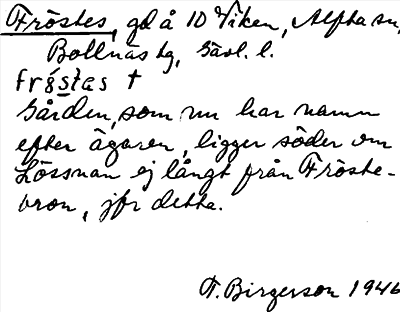 Fröstes, gd å 10 Viken, Alfta sn,
Bollnäs tg, Gävl. l.
fröstas †
Gården, som nu har namn
efter ägaren, ligger söder om
Lössnan ej långt från Fröste-
vron, jfr detta.
T. Birgerson 1946